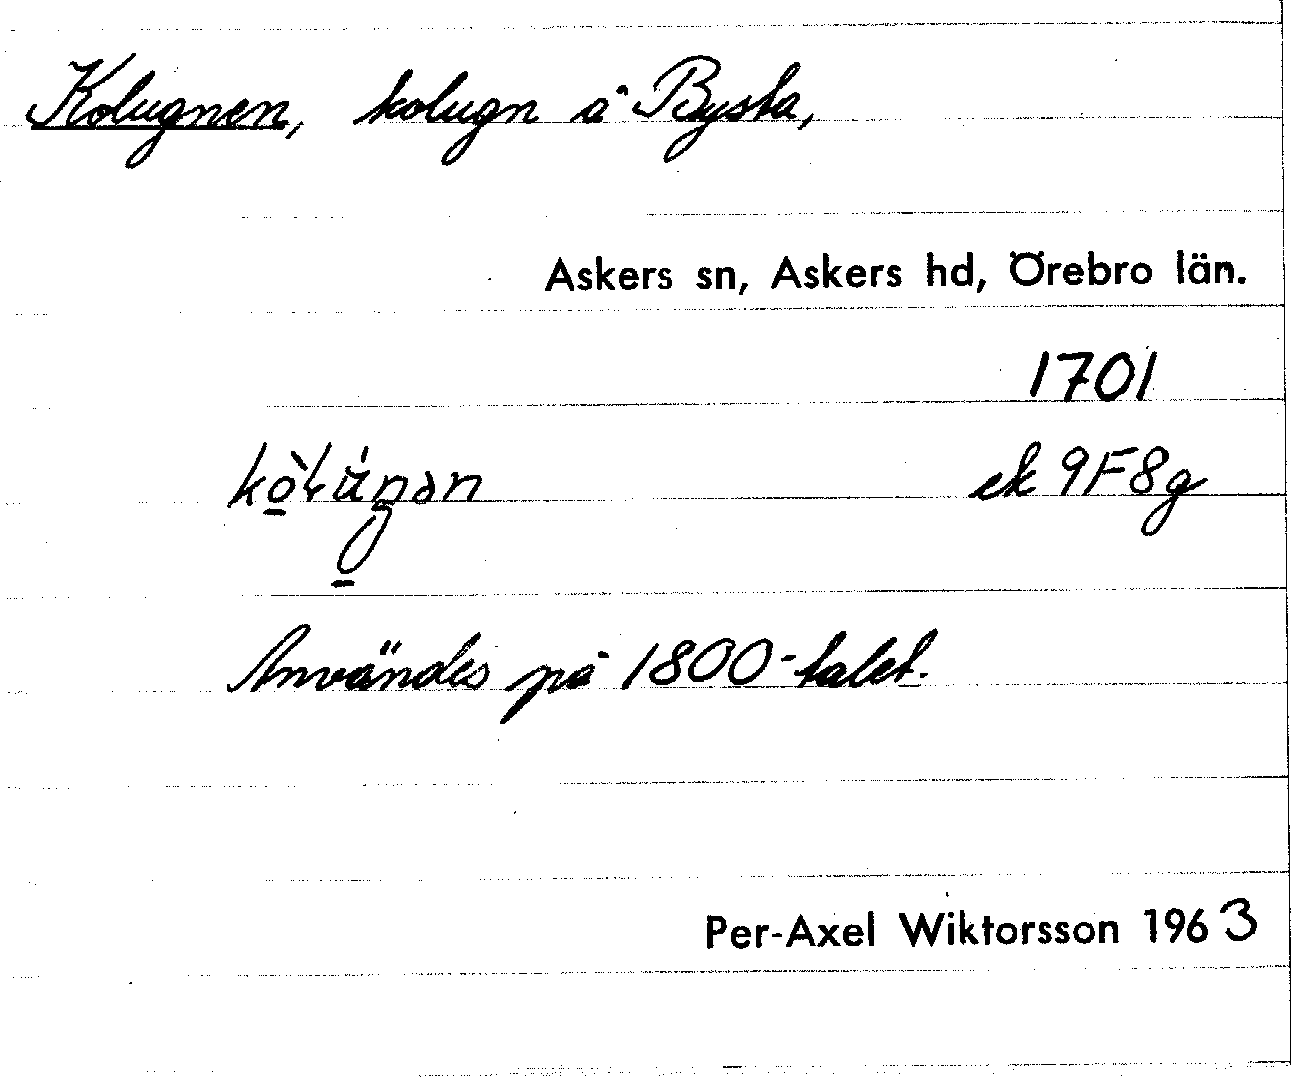 Kolugnen, kolugn å Bysta,
Askers sn, Askers hd, Örebro län.
1701
ek 9F8g
Användes på 1800-talet.
Per-Axel Wiktorsson 1963